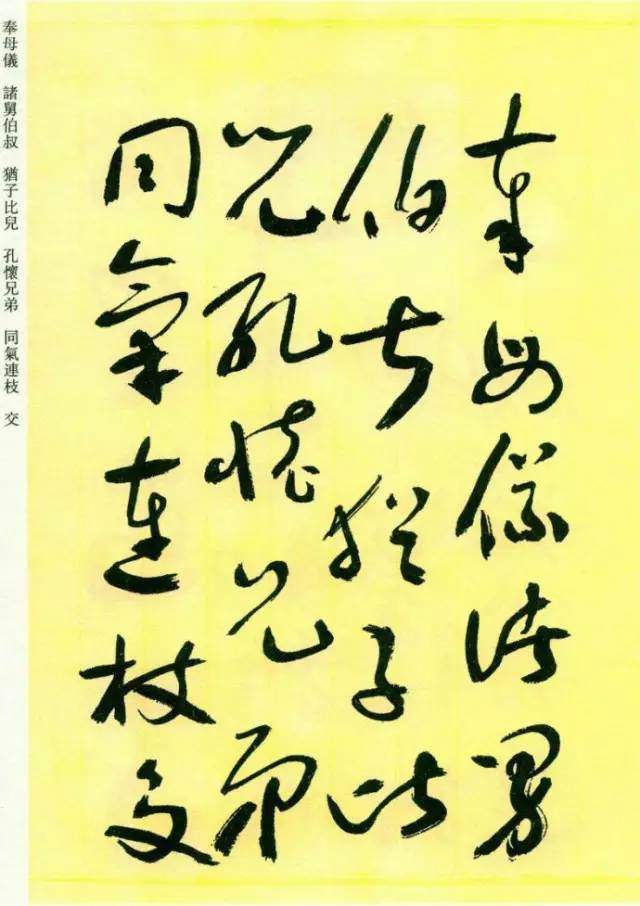 奉母儀諸舅
伯叔猶子比
兒孔懷兄弟
同氣連枝交
奉母儀 諸舅伯叔 猶子比兒 孔懷兄弟 同氣連枝 交